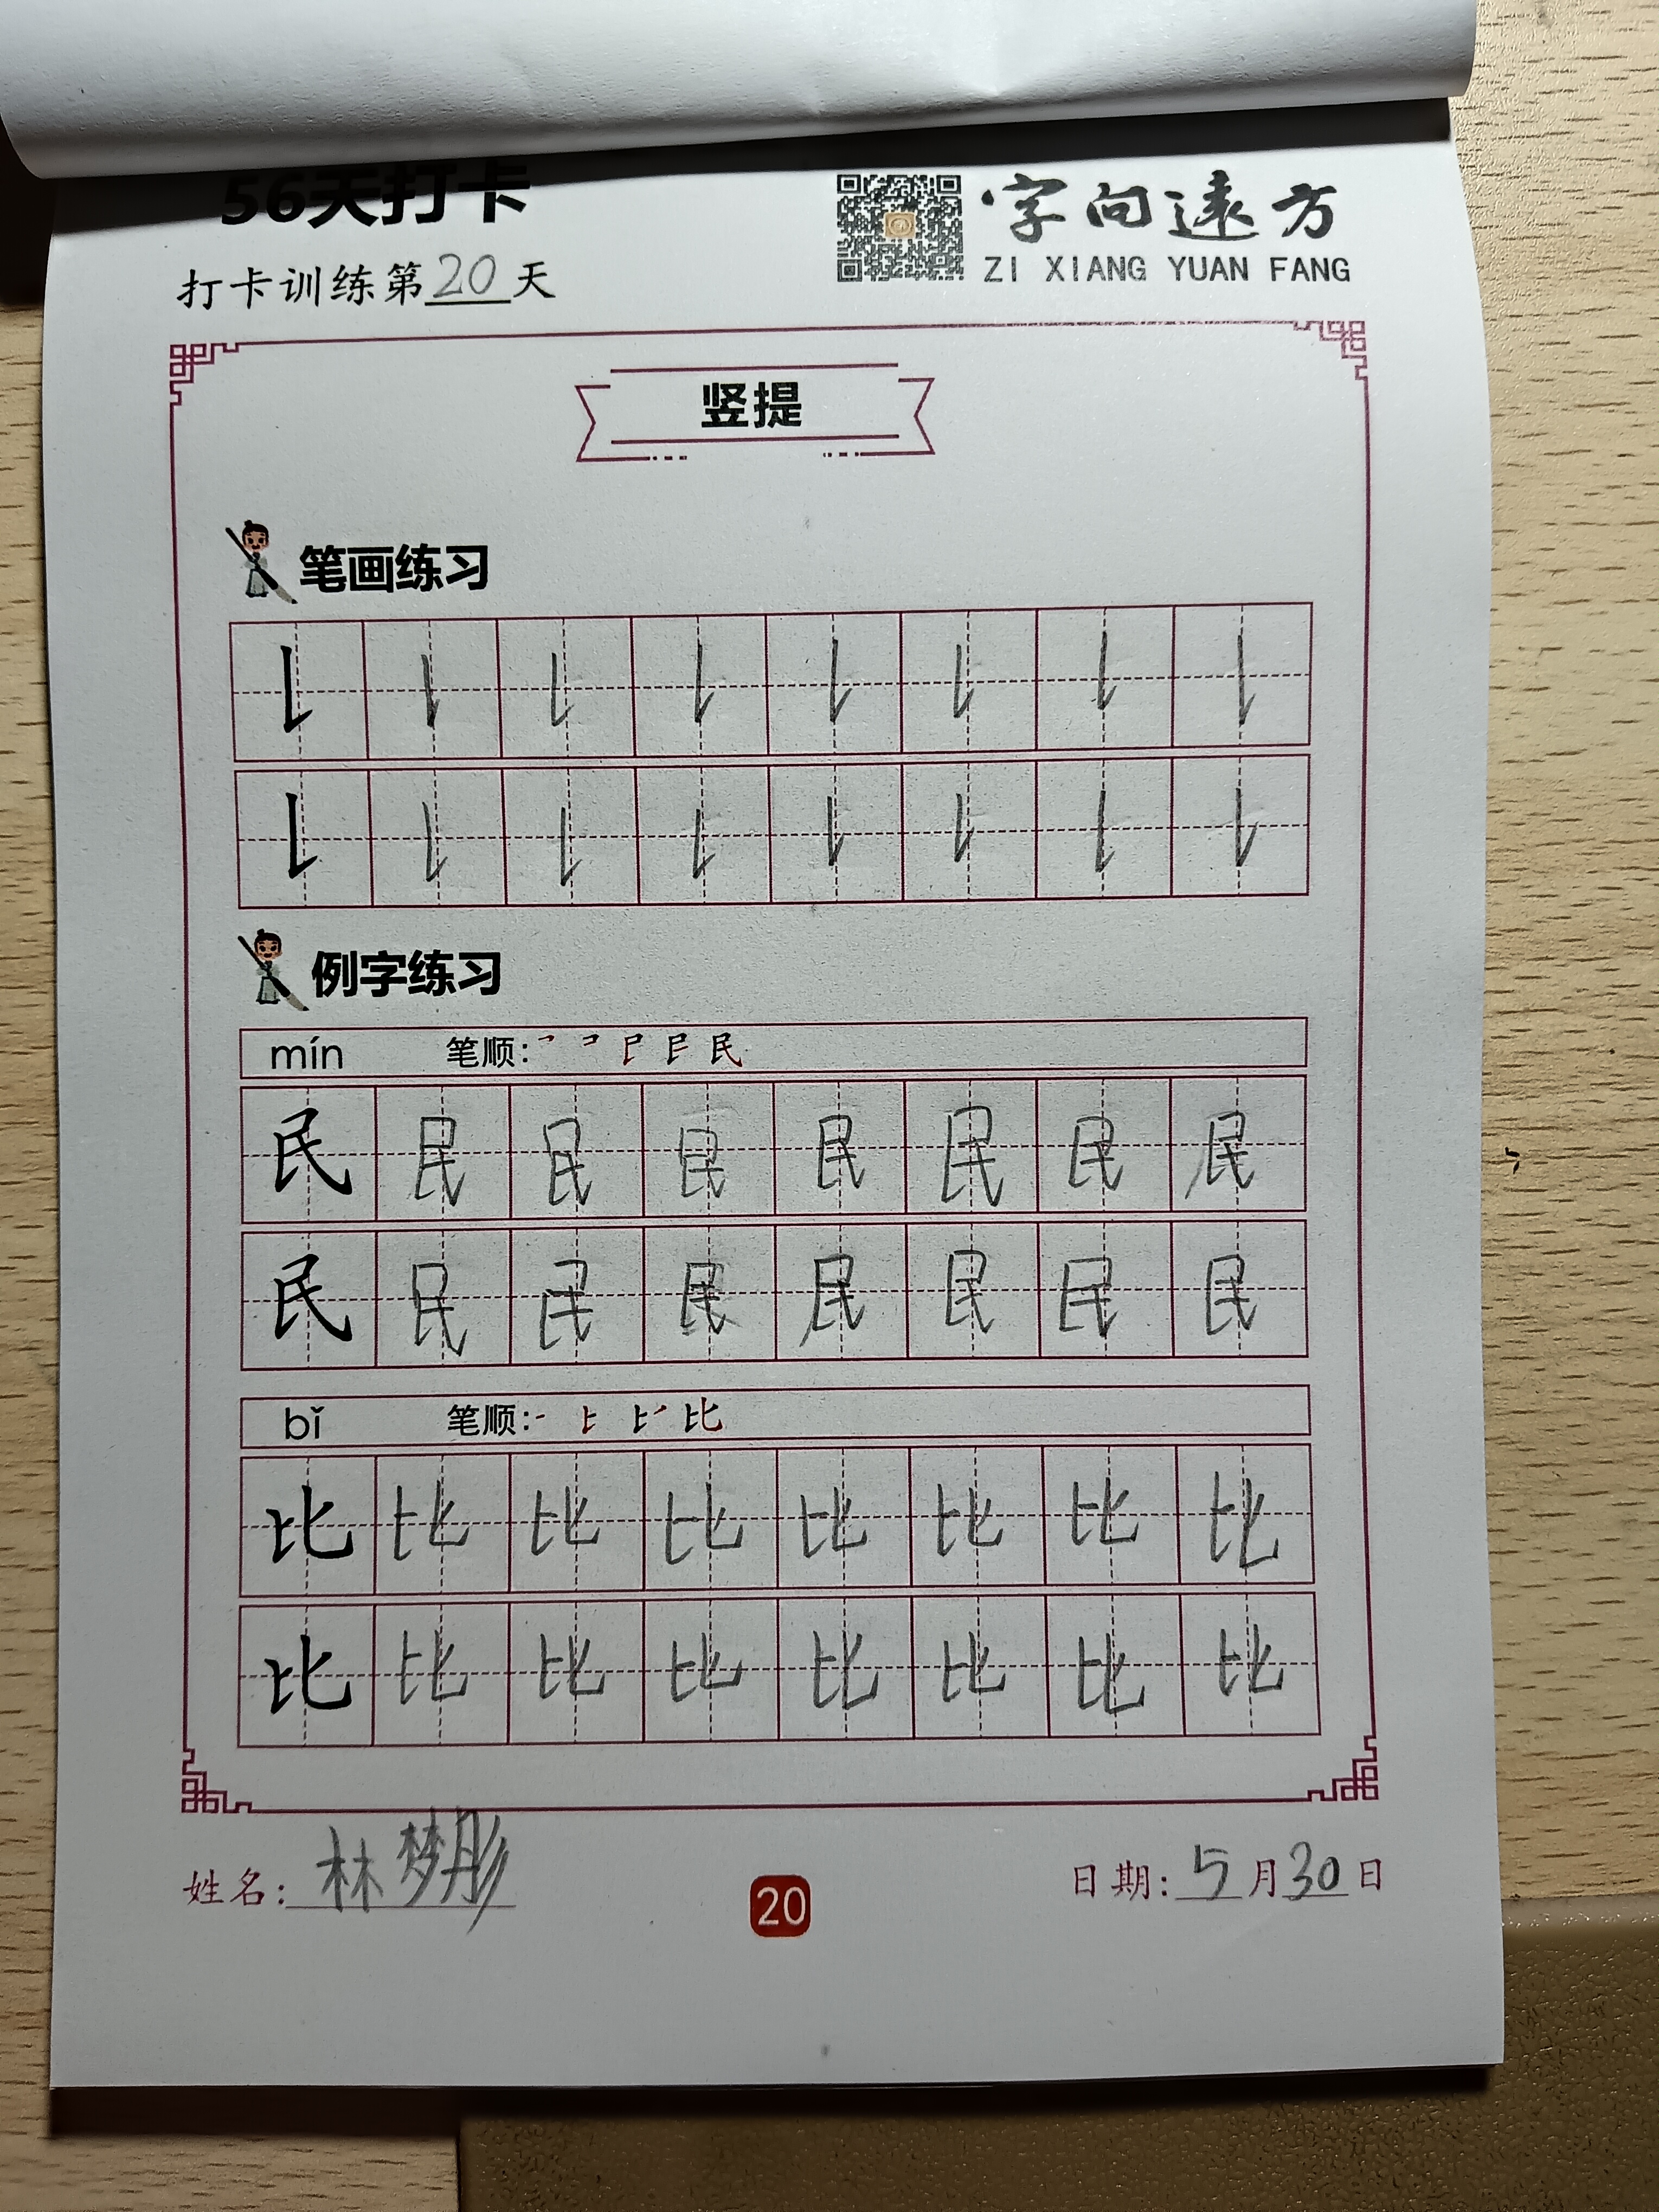 56天打卡
字向遠方
ZI XIANG YUAN FANG
打卡训练第20天
竖提
笔画练习
例字练习
mín 笔顺:
民民民民民民民民
民民民民民民民民
bǐ 笔顺:
比比比比比比比比
比比比比比比比比
姓名:林梦彤
20
日期:5月30日